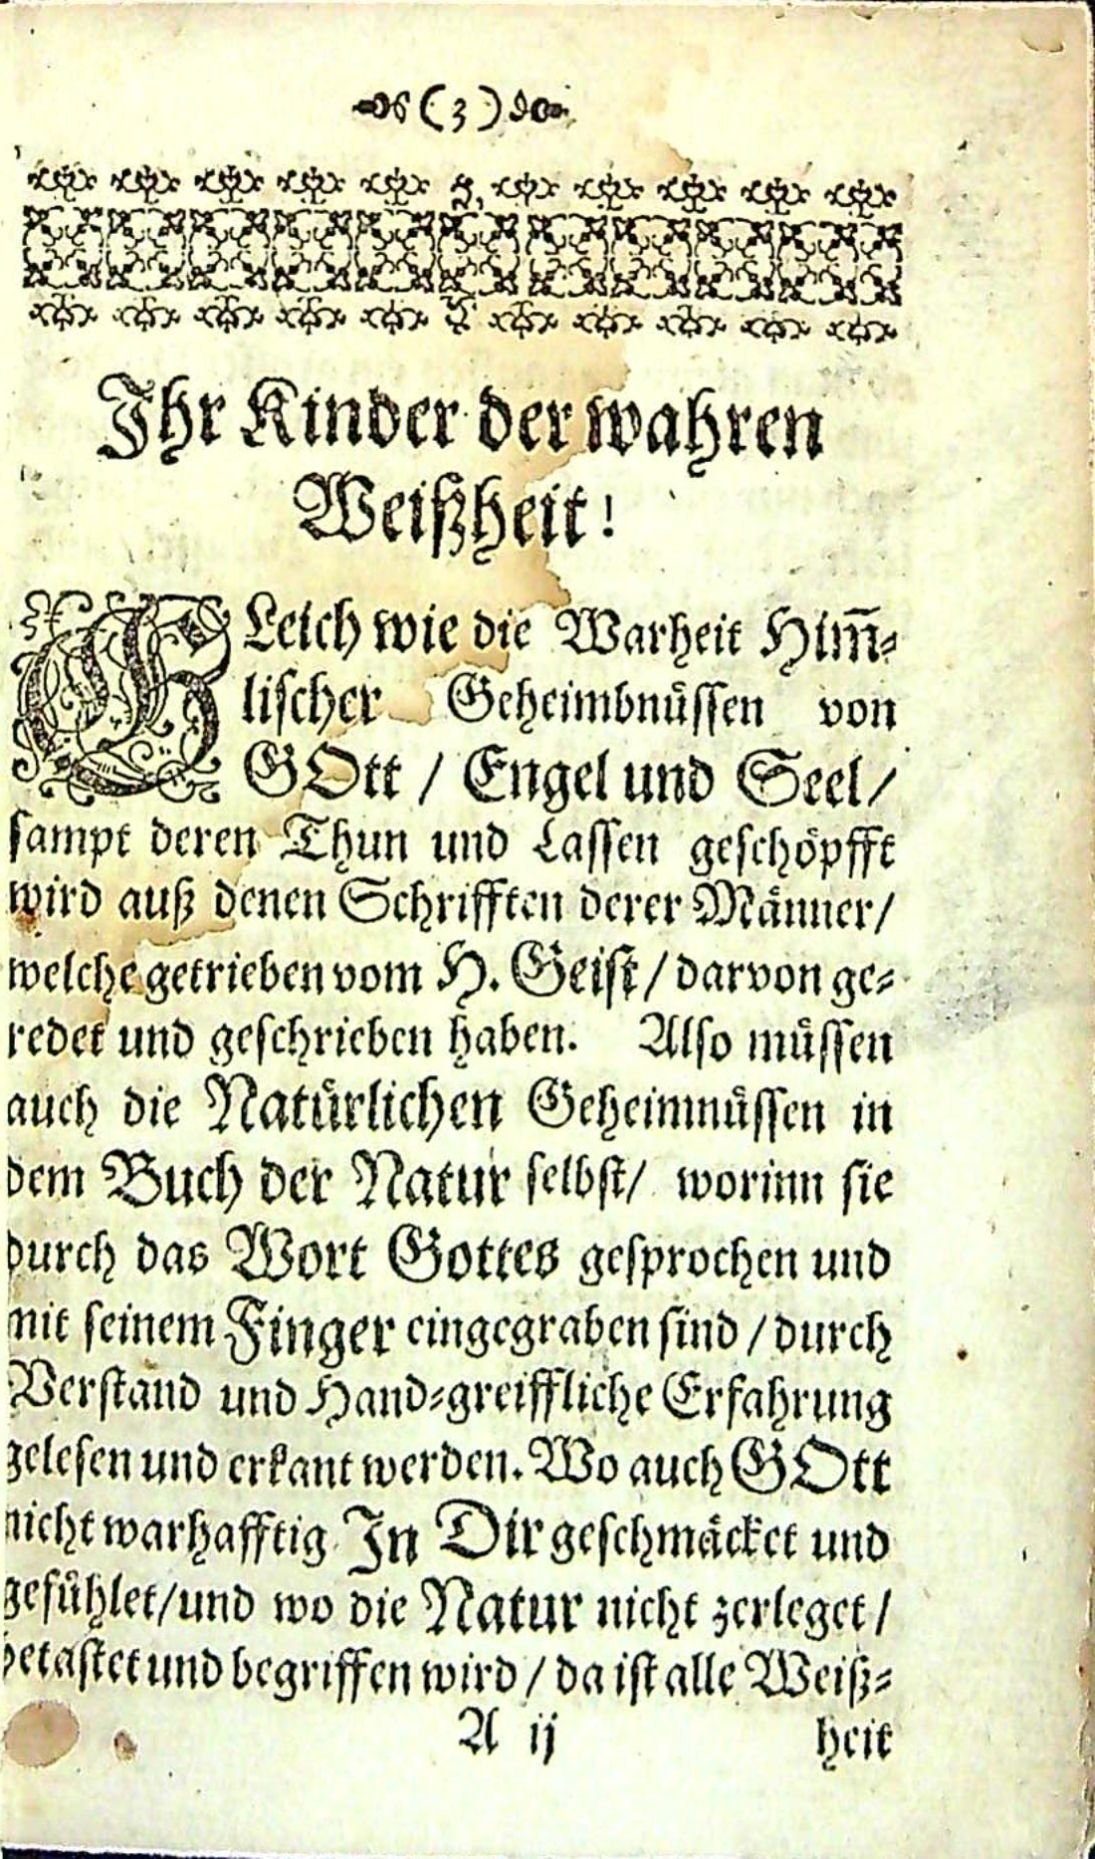 (3)
Ihr Kinder der wahren
Weißheit!
GLeich wie die Warheit Him̄-
lischer Geheimbnüssen von
GOtt / Engel und Seel /
sampt deren Thun und Lassen geschöpfft
wird auß denen Schrifften derer Männer /
welche getrieben vom H. Geist / darvon ge-
redet und geschrieben haben. Also müssen
auch die Natürlichen Geheimnüssen in
dem Buch der Natur selbst / worinn sie
durch das Wort Gottes gesprochen und
mit seinem Finger eingegraben sind / durch
Verstand und Hand-greiffliche Erfahrung
gelesen und erkant werden. Wo auch GOtt
nicht warhafftig In Dir geschmäcket und
gefühlet / und wo die Natur nicht zerleget /
betastet und begriffen wird / da ist alle Weiß-
A ij heit